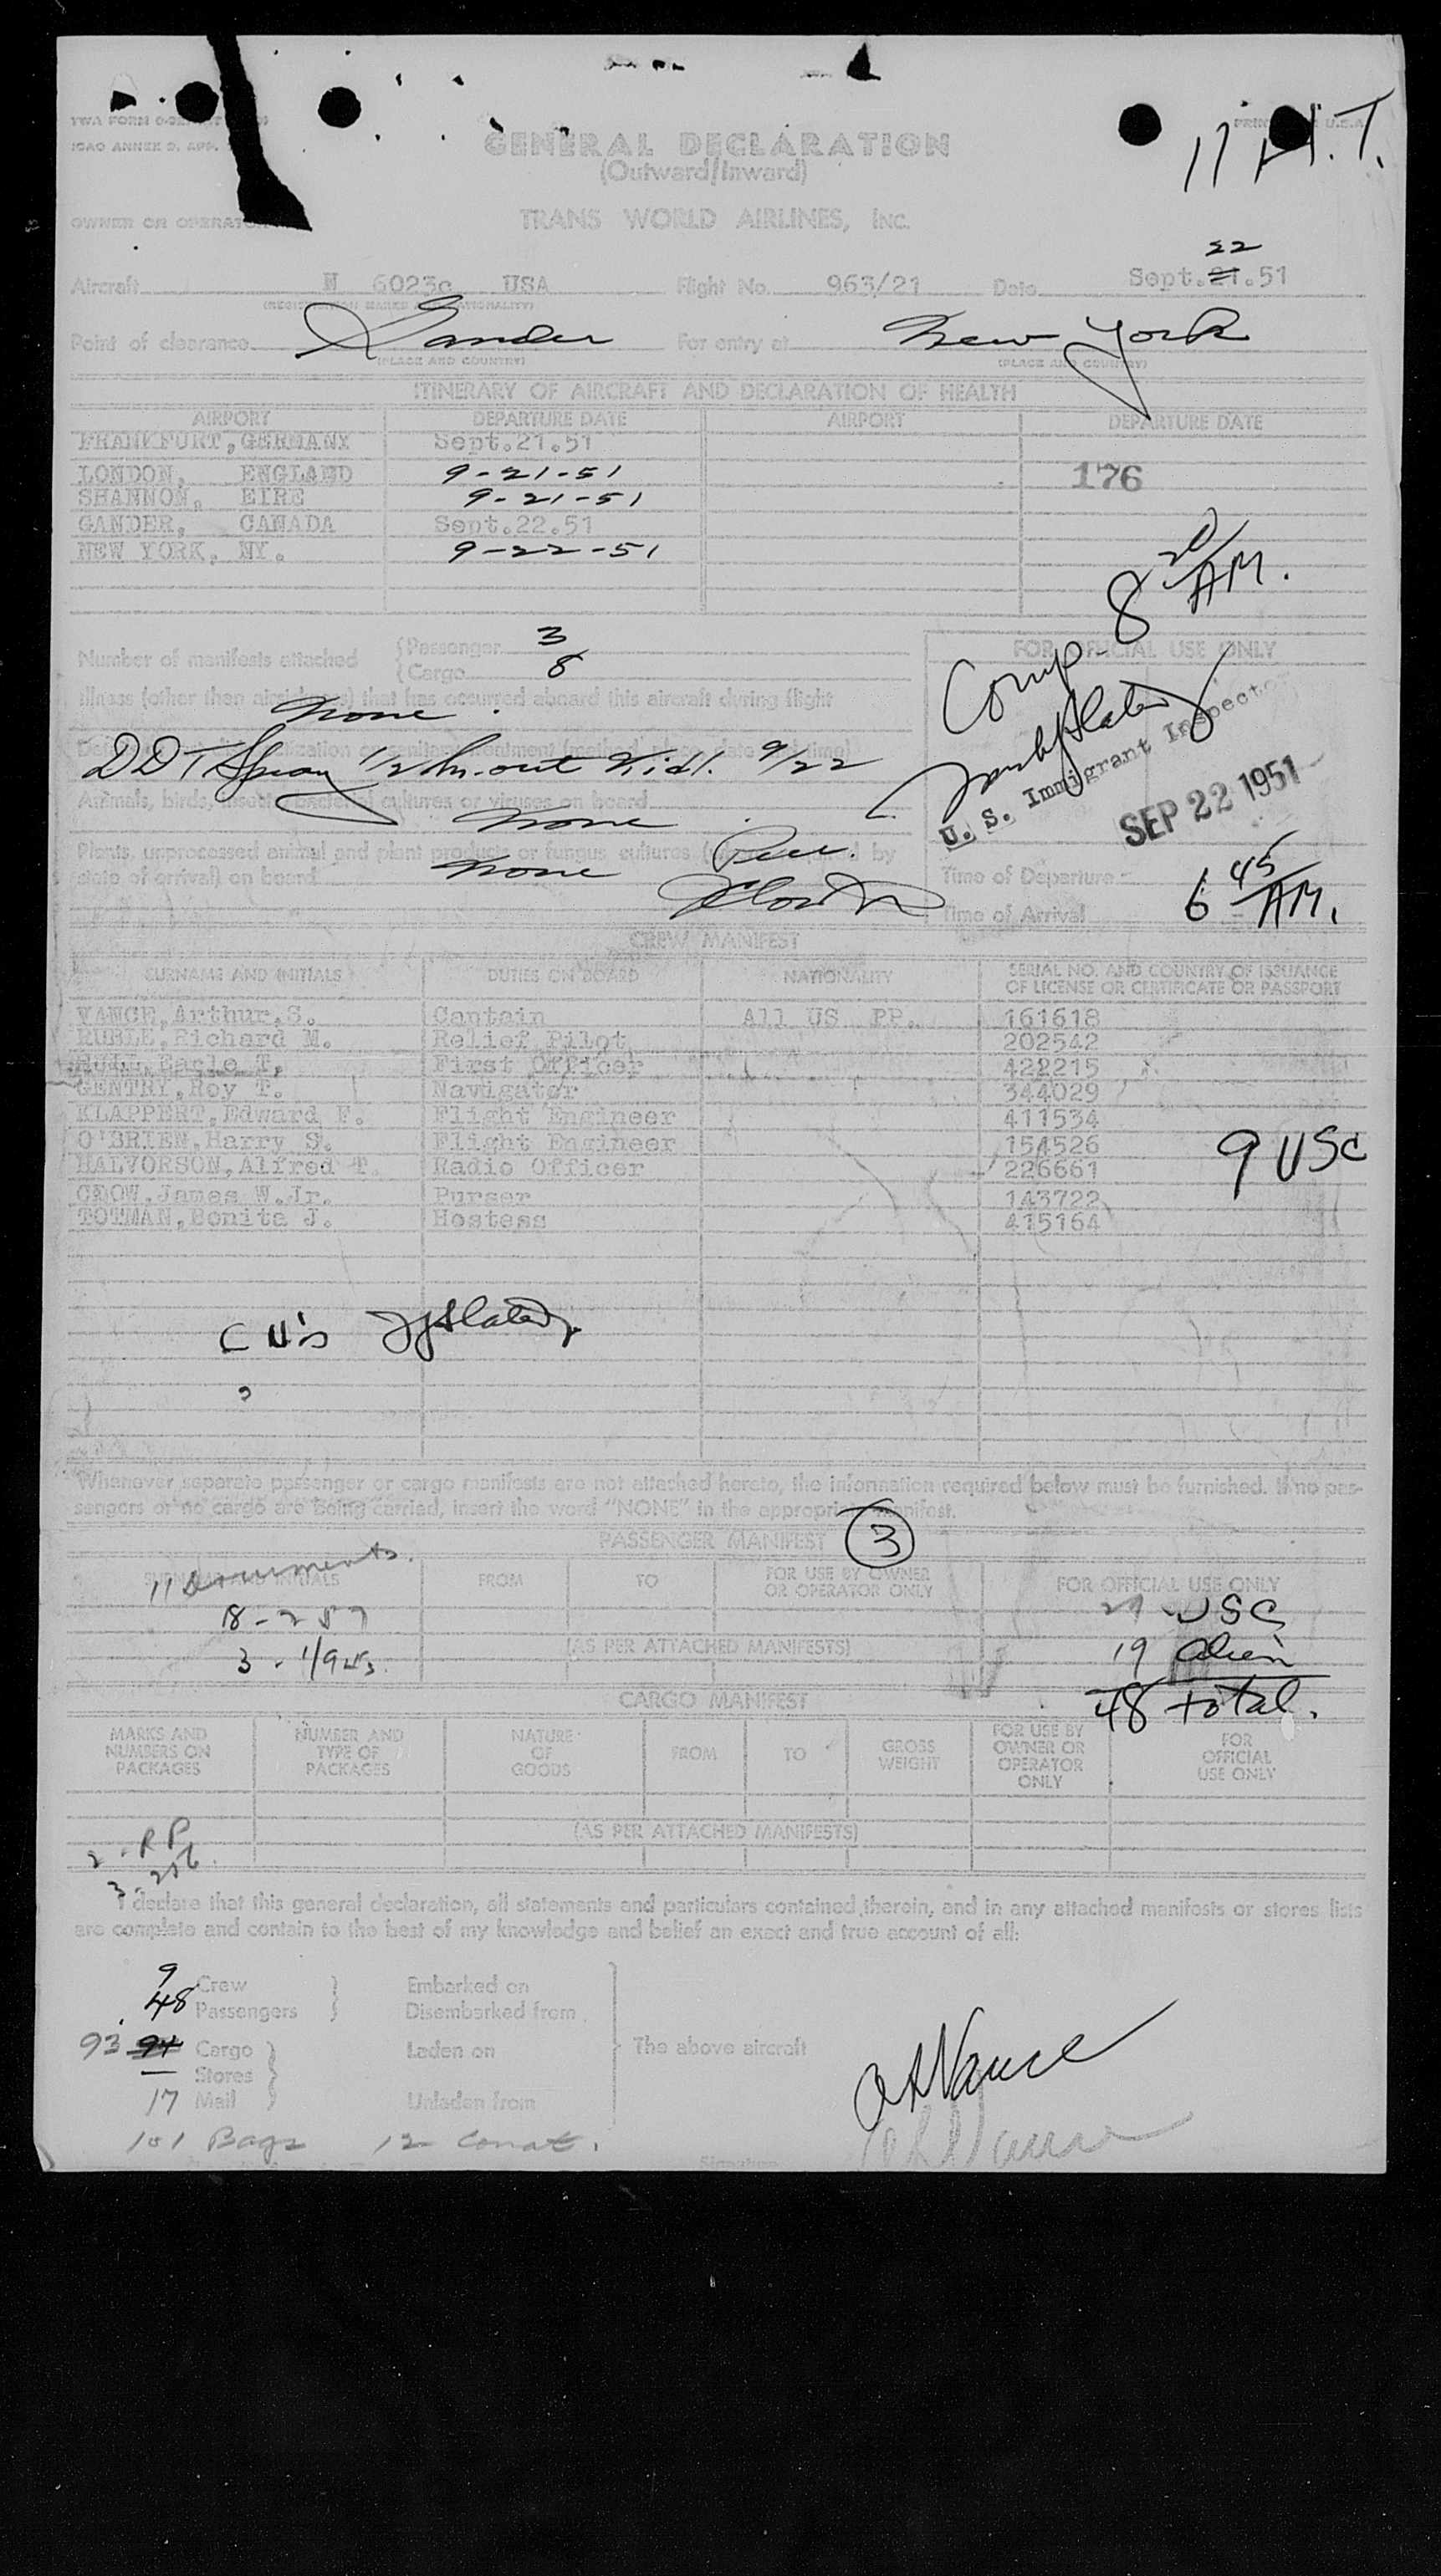 TWA FORM
PRINTED U.S.A.
ICAO ANNEX 9, APP.
11 H.T.
GENERAL DECLARATION
(Outward/Inward)
OWNER OR OPERATOR
TRANS WORLD AIRLINES, INC.
22
Aircraft N 6023c USA Flight No. 963/21 Date Sept.21.51
Point of clearance Gander For entry at New York
(PLACE AND COUNTRY) (PLACE AND COUNTRY)
ITINERARY OF AIRCRAFT AND DECLARATION OF HEALTH
AIRPORT DEPARTURE DATE AIRPORT DEPARTURE DATE
FRANKFURT, GERMANY Sept.21.51
LONDON, ENGLAND 9-21-51 176
SHANNON, EIRE 9-21-51
GANDER, CANADA Sept.22.51
NEW YORK, NY. 9-22-51
Comp 8 20/AM.
Number of manifests attached
Passenger 3
Cargo 8
FOR OFFICIAL USE ONLY
Illness (other than airsickness) that has occurred aboard this aircraft during flight
None.
DDT Spray 1/2 hr. out Kidl. 9/22
U. S. Immigrant Inspector
SEP 22 1951
Animals, birds, insects, bacterial cultures or viruses on board
None
Plants, unprocessed animal and plant products or fungus cultures by
state of arrival) on board None
Time of Departure
Time of Arrival 6 45/AM.
CREW MANIFEST
SURNAME AND INITIALS DUTIES ON BOARD NATIONALITY SERIAL NO. AND COUNTRY OF ISSUANCE
OF LICENSE OR CERTIFICATE OR PASSPORT
VANCE, Arthur.S. Captain All US PP. 161618
RUBLE, Richard M. Relief Pilot 202542
Earle T, First Officer 422215
GENTRY, Roy T. Navigator 344029
KLAPPERT, Edward F. Flight Engineer 411534
O'BRIEN, Harry S. Flight Engineer 154526
9 USC
HALVORSON, Alfred T. Radio Officer 226661
CROW, James W.Jr. Purser 143722
TOTMAN, Bonita J. Hostess 415164
Whenever separate passenger or cargo manifests are not attached hereto, the information required below must be furnished. If no pas-
sengers or no cargo are being carried, insert the word "NONE" in the appropriate manifest.
PASSENGER MANIFEST 3
11 Documents.
SURNAME AND INITIALS FROM TO FOR USE BY OWNER
OR OPERATOR ONLY FOR OFFICIAL USE ONLY
8-257 29 USC
(AS PER ATTACHED MANIFESTS) 19 Alien
48 total.
CARGO MANIFEST
MARKS AND
NUMBERS ON
PACKAGES
NUMBER AND
TYPE OF
PACKAGES
NATURE
OF
GOODS
FROM TO
GROSS
WEIGHT
FOR USE BY
OWNER OR
OPERATOR
ONLY
FOR
OFFICIAL
USE ONLY
(AS PER ATTACHED MANIFESTS)
2-RP
3-256
I declare that this general declaration, all statements and particulars contained therein, and in any attached manifests or stores lists
are complete and contain to the best of my knowledge and belief an exact and true account of all:
9 Crew Embarked on
48 Passengers Disembarked from
93 94 Cargo Laden on The above aircraft
Stores
17 Mail Unladen from
ASVance
101 Bags 12 Comat.
Signature